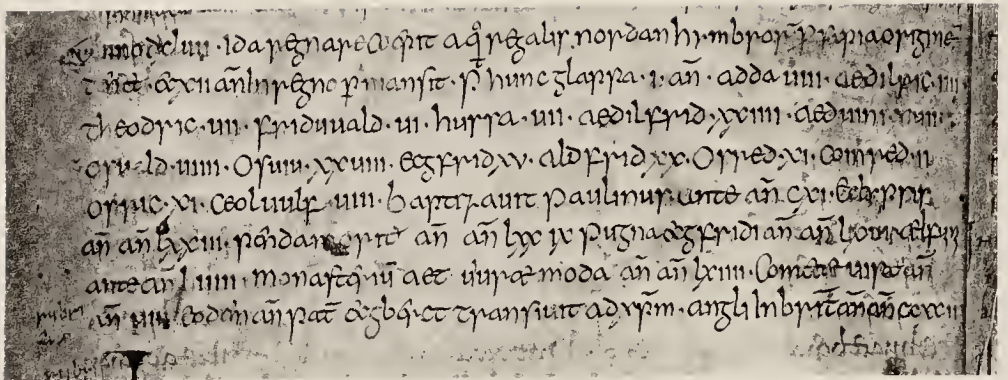 anno dxluii · ida regnare coepit a q̄ regalis nordan hymbroꝝ prosapia originē
tenet · et xii an̄ in regno ꝑmansit · p̄ hunc glappa · i · an̄ · adda uiii · aedilric · iiii
theodric · uii · friduuald · ui · hussa · uii · aedilfrid · xxiiii · aeduini · xuii ·
osuald · uiiii · Osuiu · xxuiii · ecgfrid xu · aldfrid xx · Osred · xi · Coinred · ii
osric · xi · Ceoluulf · uiii · baptizauit paulinus · ante an̄ cxi · Eclipsis
an̄ an̄ lxxiii · penda moritur an̄ an̄ lxxix pugna ecgfridi an̄ an̄ lxiii aelfuini
ante an̄ luiii · monasterium aet uiuraemoda an̄ an̄ lxiiii · Cometae uisae an̄
an̄ uiii eodem an̄ pat̄ ecgb · et transiuit ad xp̄m · angli in britt̄ an̄ an̄ ccxcii